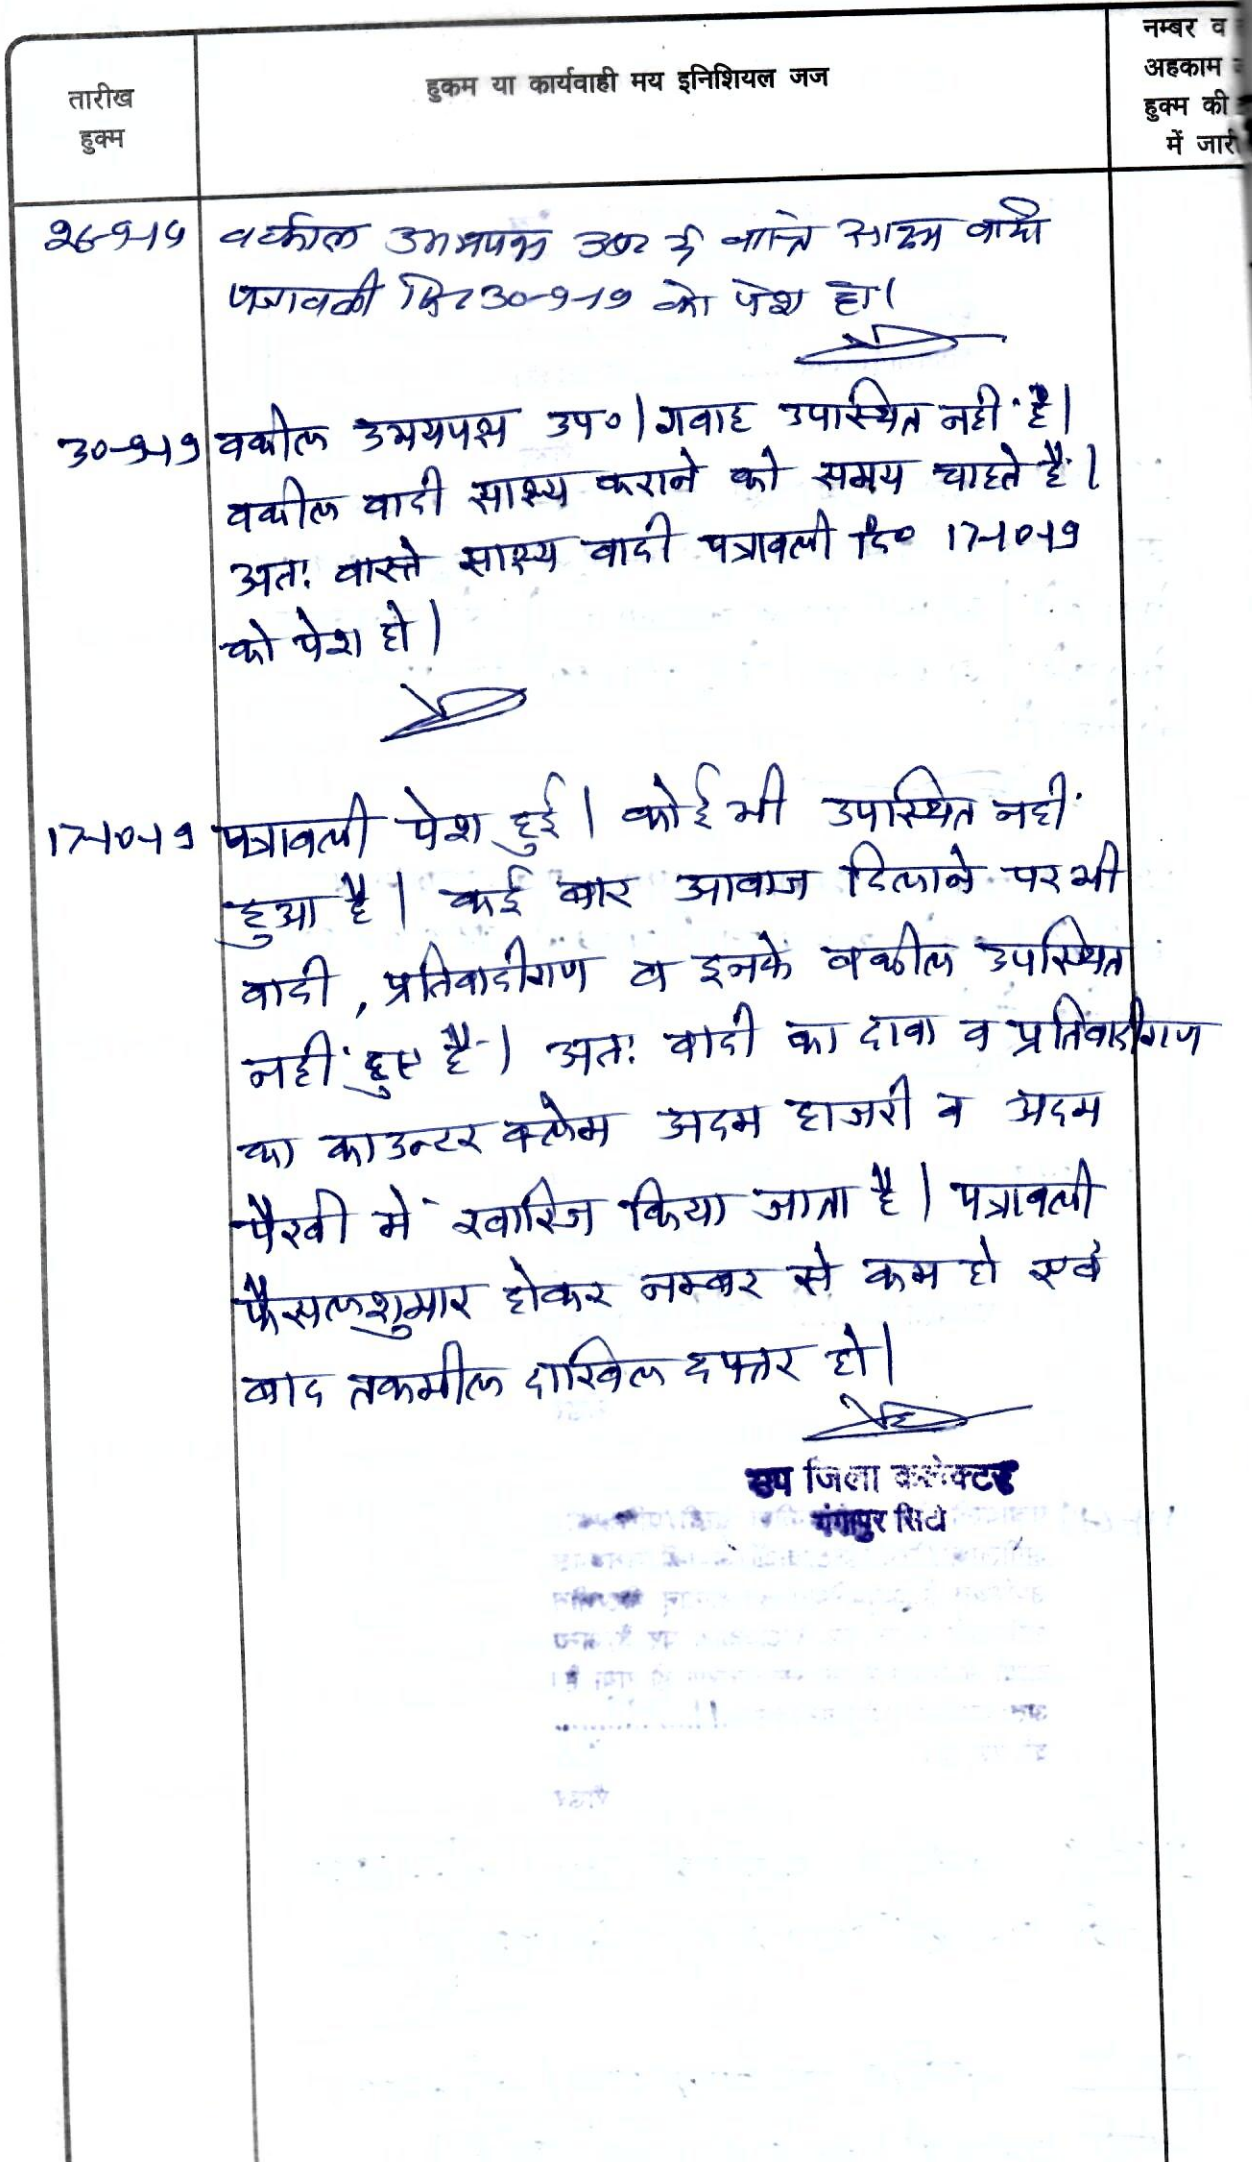 तारीख
हुक्म
हुकम या कार्यवाही मय इनिशियल जज
नम्बर व
अहकाम
हुक्म की
में जारी
26-9-19 वकील उभयपक्ष उप० है वास्ते साक्ष्य वादी
पत्रावली दि० 30-9-19 को पेश हो।
30-9-19 वकील उभयपक्ष उप०। गवाह उपास्थित नहीं है।
वकील वादी साक्ष्य कराने को समय चाहते है।
अतः वास्ते साक्ष्य वादी पत्रावली दि० 17-10-19
को पेश हो।
17-10-19 पत्रावली पेश हुई। कोई भी उपास्थित नहीं
हुआ है। कई बार आवाज दिलाने पर भी
वादी, प्रतिवादीगण व इनके वकील उपस्थित
नहीं हुए है। अतः वादी का दावा व प्रतिवादीगण
का काउन्टर क्लेम अदम हाजरी व अदम
पैरवी में खारिज किया जाता है। पत्रावली
फैसलशुमार होकर नम्बर से कम हो एवं
बाद तकमील दाखिल दफ्तर हो।
उप जिला कलेक्टर
गंगापुर सिटी